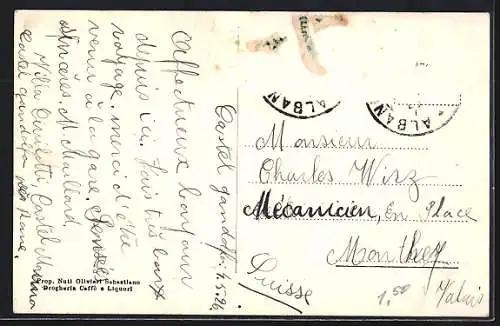 Castel gandolfo, 4.5.26
Affectueux bonjour
depuis ici. Fais très beau
voyage. merci d'être
venu à la gare. Pensées
sincères. M. Muillard.
Villa Castel
Castel gandolfo près Rome.
Prop. Nuti Olivieri Sebastiano
Drogheria Caffè e Liquori
ALBAN
ALBAN
Monsieur
Charles Wirz
Mécanicien, En Place
Monthey
Suisse
Valais
1,50